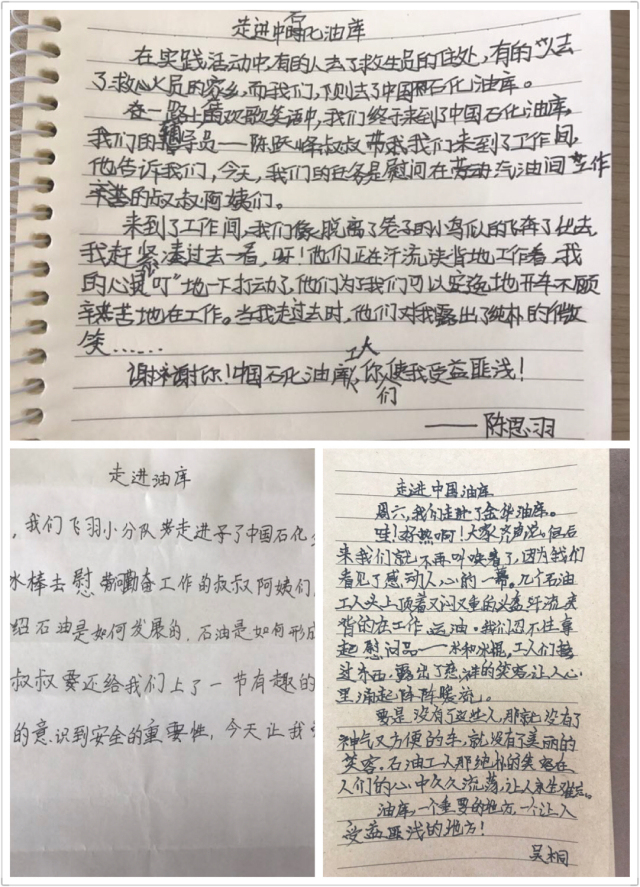 走进中石化油库
在实践活动中,有的人去了救生员的住处,有的人去
了救火员的家乡,而我们,则去了中国石化油库。
在一路上的欢歌笑语中,我们终于来到了中国石化油库,
我们的辅导员——陈跃峰叔叔带我们来到了工作间,
他告诉我们,今天,我们的任务是慰问在劳动汽油间工作
辛苦的叔叔阿姨们。
来到了工作间,我们像脱离了笼子的小鸟似的飞奔了出去,
我赶紧凑过去一看,呀!他们正在汗流浃背地工作着,我
的心灵“叮”地一下打动了,他们为了我们可以安逸地开车不顾
辛苦地在工作。当我走过去时,他们对我露出了纯朴的微
笑……
谢谢你!中国石化油库工人,你们使我受益匪浅!
——陈思羽
走进油库
,我们飞羽小分队走进了中国石化
冰棒去慰问勤奋工作的叔叔阿姨们
绍石油是如何发展的,石油是如何形成
叔叔还给我们上了一节有趣的
的意识到安全的重要性,今天让我
走进中国油库
周六,我们走进了金华油库。
哇!好热啊!大家齐声说,但后
来我们就不再叫唤着了,因为我们
看见了感动人心的一幕。几个石油
工人头上顶着又闷又重的头盔汗流浃
背的在工作,运油。我们忍不住拿
起慰问品——水和冰棍,工人们接
过东西,露出了的笑容,让人心
里涌起阵阵暖流。
要是没有了这些人,那就没有了
神气又方便的车,就没有了美丽的
笑容。石油工人那纯朴的笑容在
人们的心中久久流荡,让人永生难忘。
油库,一个重要的地方,一个让人
受益匪浅的地方!
吴桐